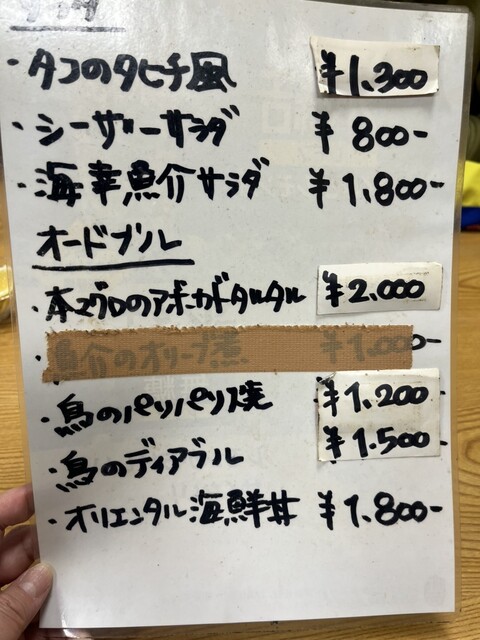 サラダ
・タコのタヒチ風 ¥1,300
・シーザーサラダ ¥800-
・海幸魚介サラダ ¥1,800-
オードブル
・本マグロのアボカドタルタル ¥2,000
・魚介のオリーブ煮 ¥1,000-
・鳥のパリパリ焼 ¥1,200-
・鳥のディアブル ¥1,500-
・オリエンタル海鮮丼 ¥1,800-